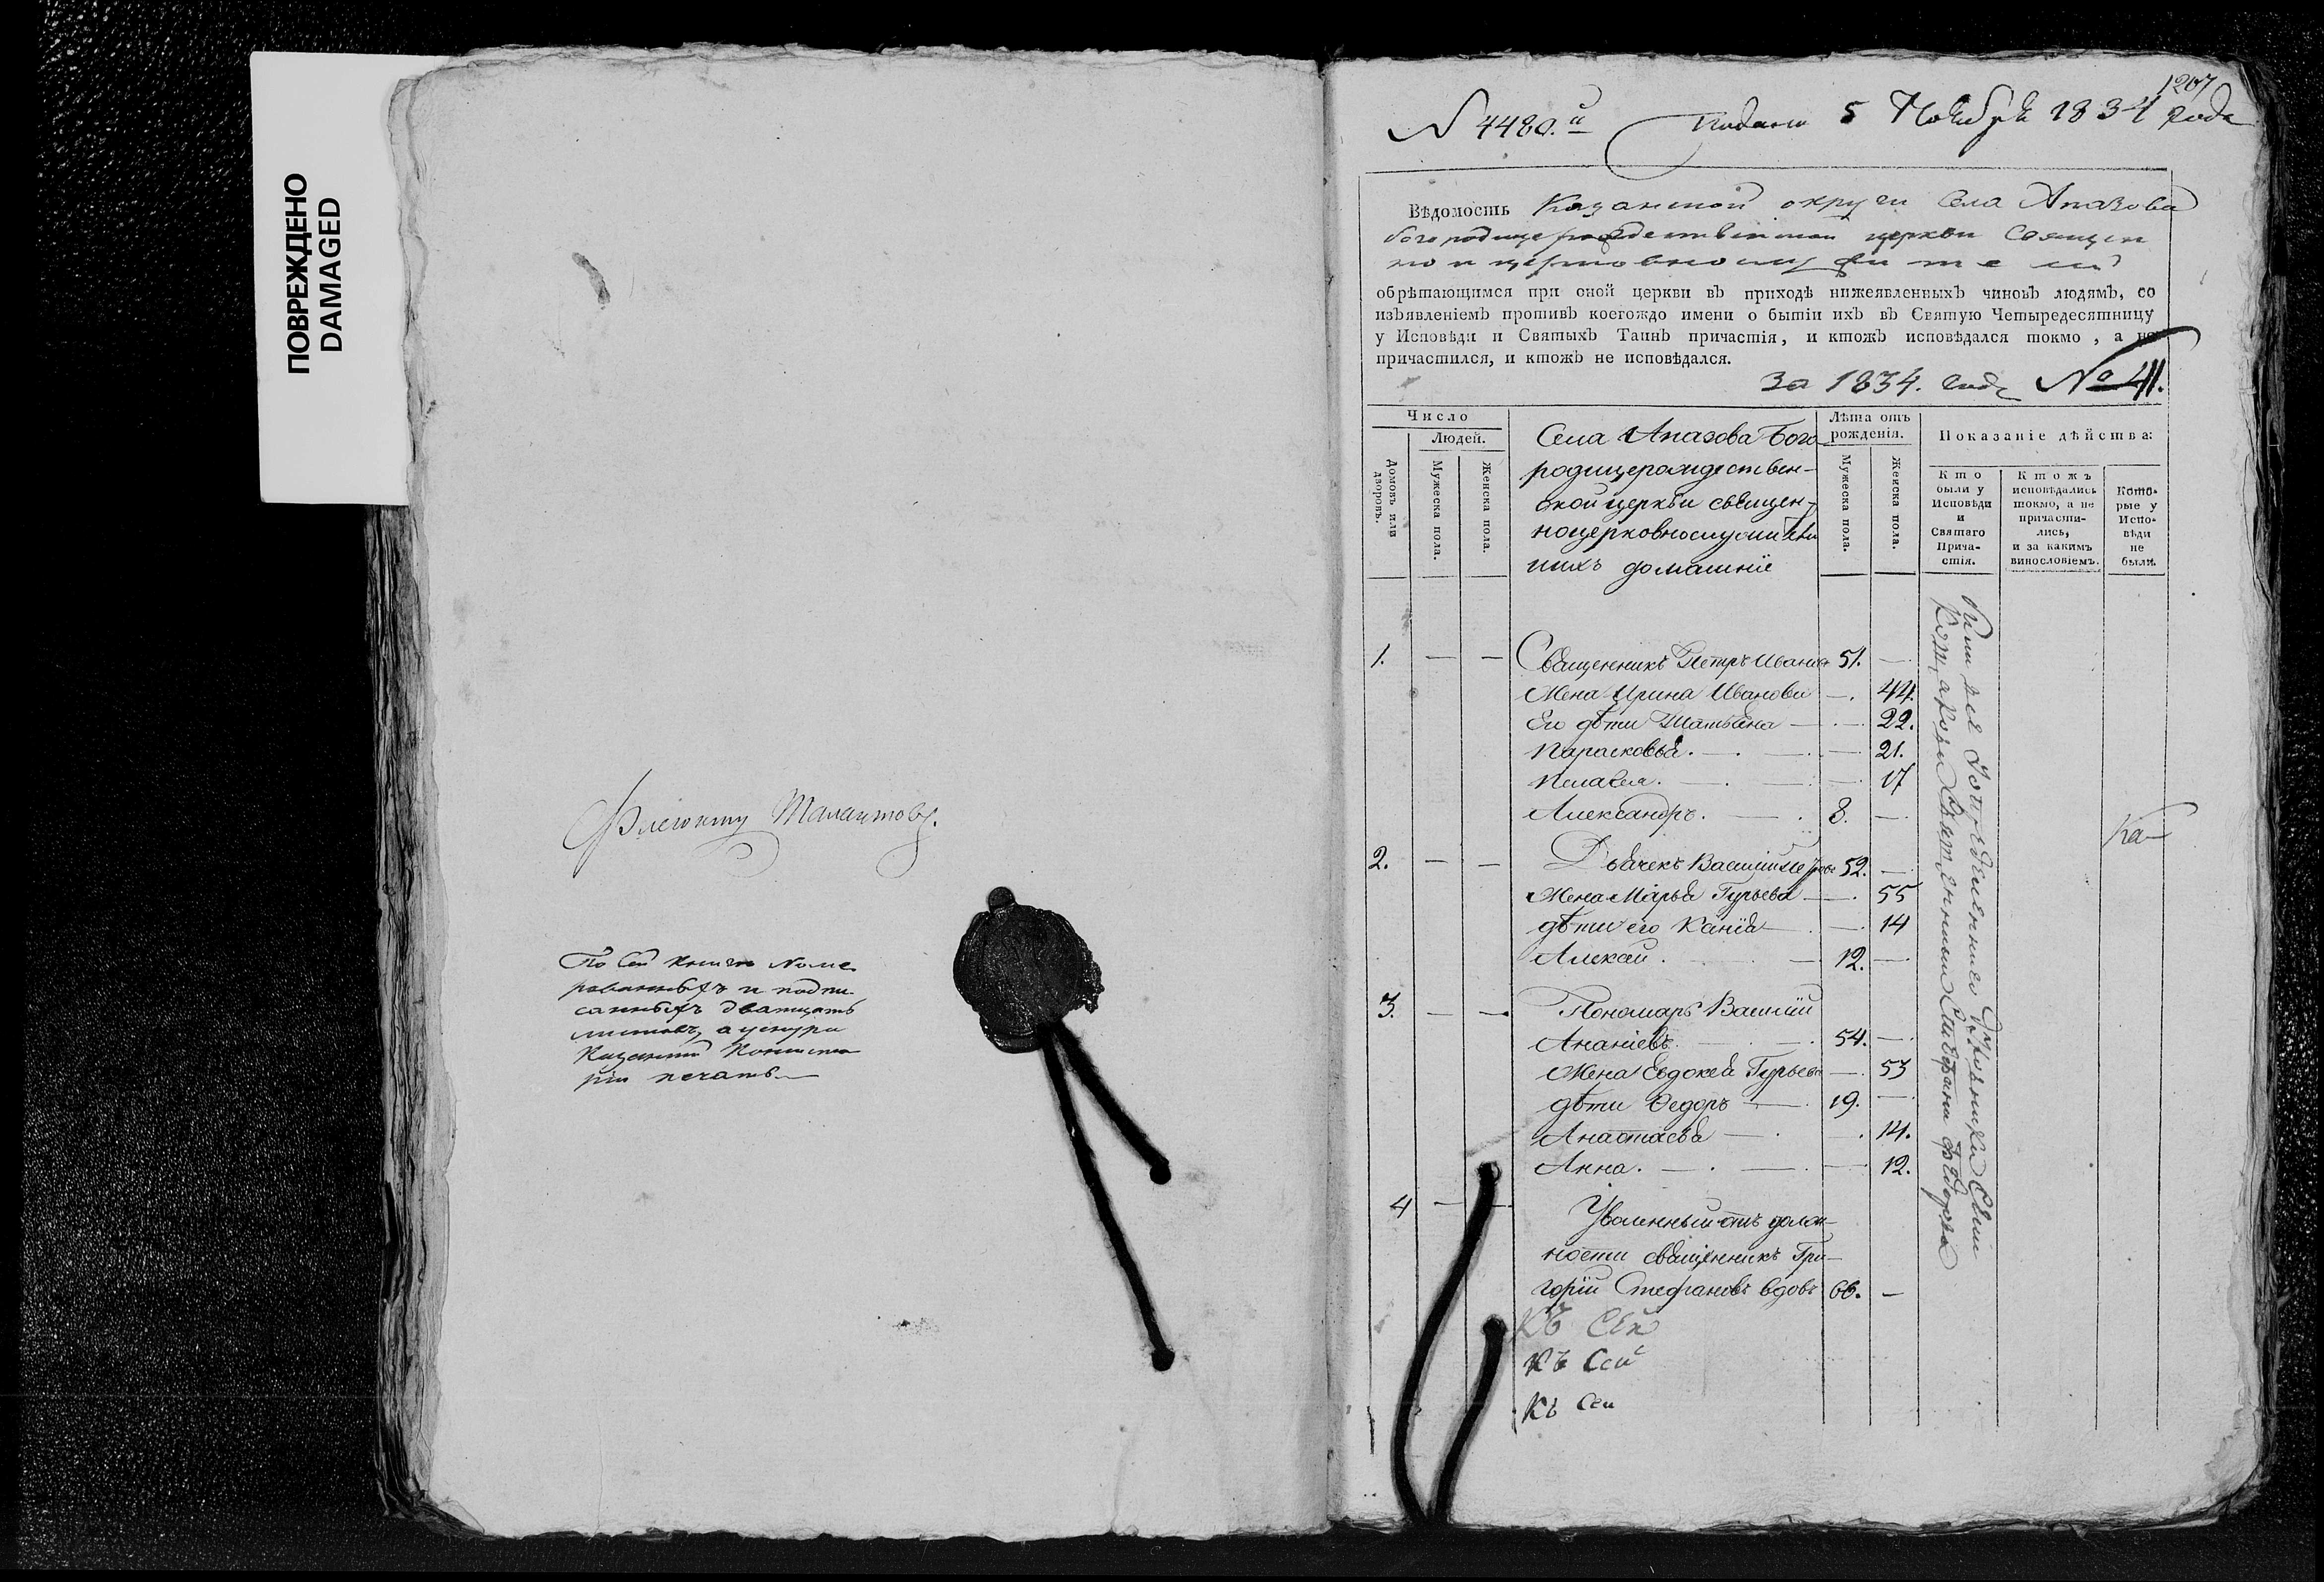 ПОВРЕЖДЕНО
DAMAGED
Талантову.
По сей книге Номе
рованныхъ и подпи
санныхъ дватцать
листовъ, а уснура
Казанской Консисто
ріи печать
1207
N 4480.й Подано 5 Ноября 1834 года
Вѣдомость Казанской округи села Апазова
богородицерождественской церкви Священ
но и церковно
обрѣтающимся при оной церкви въ приходѣ нижеявленныхъ чиновъ людямъ, со
изъявленіемъ противъ коегождо имени о бытіи ихъ въ Святую Четыредесятницу
у Исповѣди и Святыхъ Таинъ причастія, и ктожъ исповѣдался токмо, а не
причастился, и ктожъ не исповѣдался.
за 1834. годъ № 41.
Число
Людей.
Домовъ или дворовъ.
Мужеска пола.
Женска пола.
Села Апазова Бого
родицерождествен-
ской церкви священ-
ноцерковнослужители
ихъ домашніе
Лѣта отъ
рожденія.
Мужеска пола.
Женска пола.
Показаніе дѣйства:
Кто
были у
Исповѣди
и
Святаго
Прича-
стія.
Ктожъ
исповѣдались
токмо, а не
причасти-
лись,
и за какимъ
винословіемъ.
Кото-
рые у
Испо-
вѣди
не
были.
1. — — Священникъ Петръ Ивановъ 51. —
Жена Ирина Иванова — 44.
Ево дѣти Татьяна — 22.
Парасковья. — 21.
Пелагея. — 17
Александръ. — 8. —
2. — — Дьячекъ Василій Петровъ 52. —
Жена Марья Гурьева — 55
дѣти его Ксанія — 14
Алексѣй. — 12. —
3. — — Пономарь Василій
Ананіевъ. 54. —
Жена Евдокея Гурьева — 53
дѣти Федоръ — 19. —
Анастасья — 14.
Анна. — 12.
4 — — Уволенный отъ долж-
ности священникъ Гри-
горій Стефановъ вдовъ 66. —
Къ Сей
Къ Сей
Къ Сей